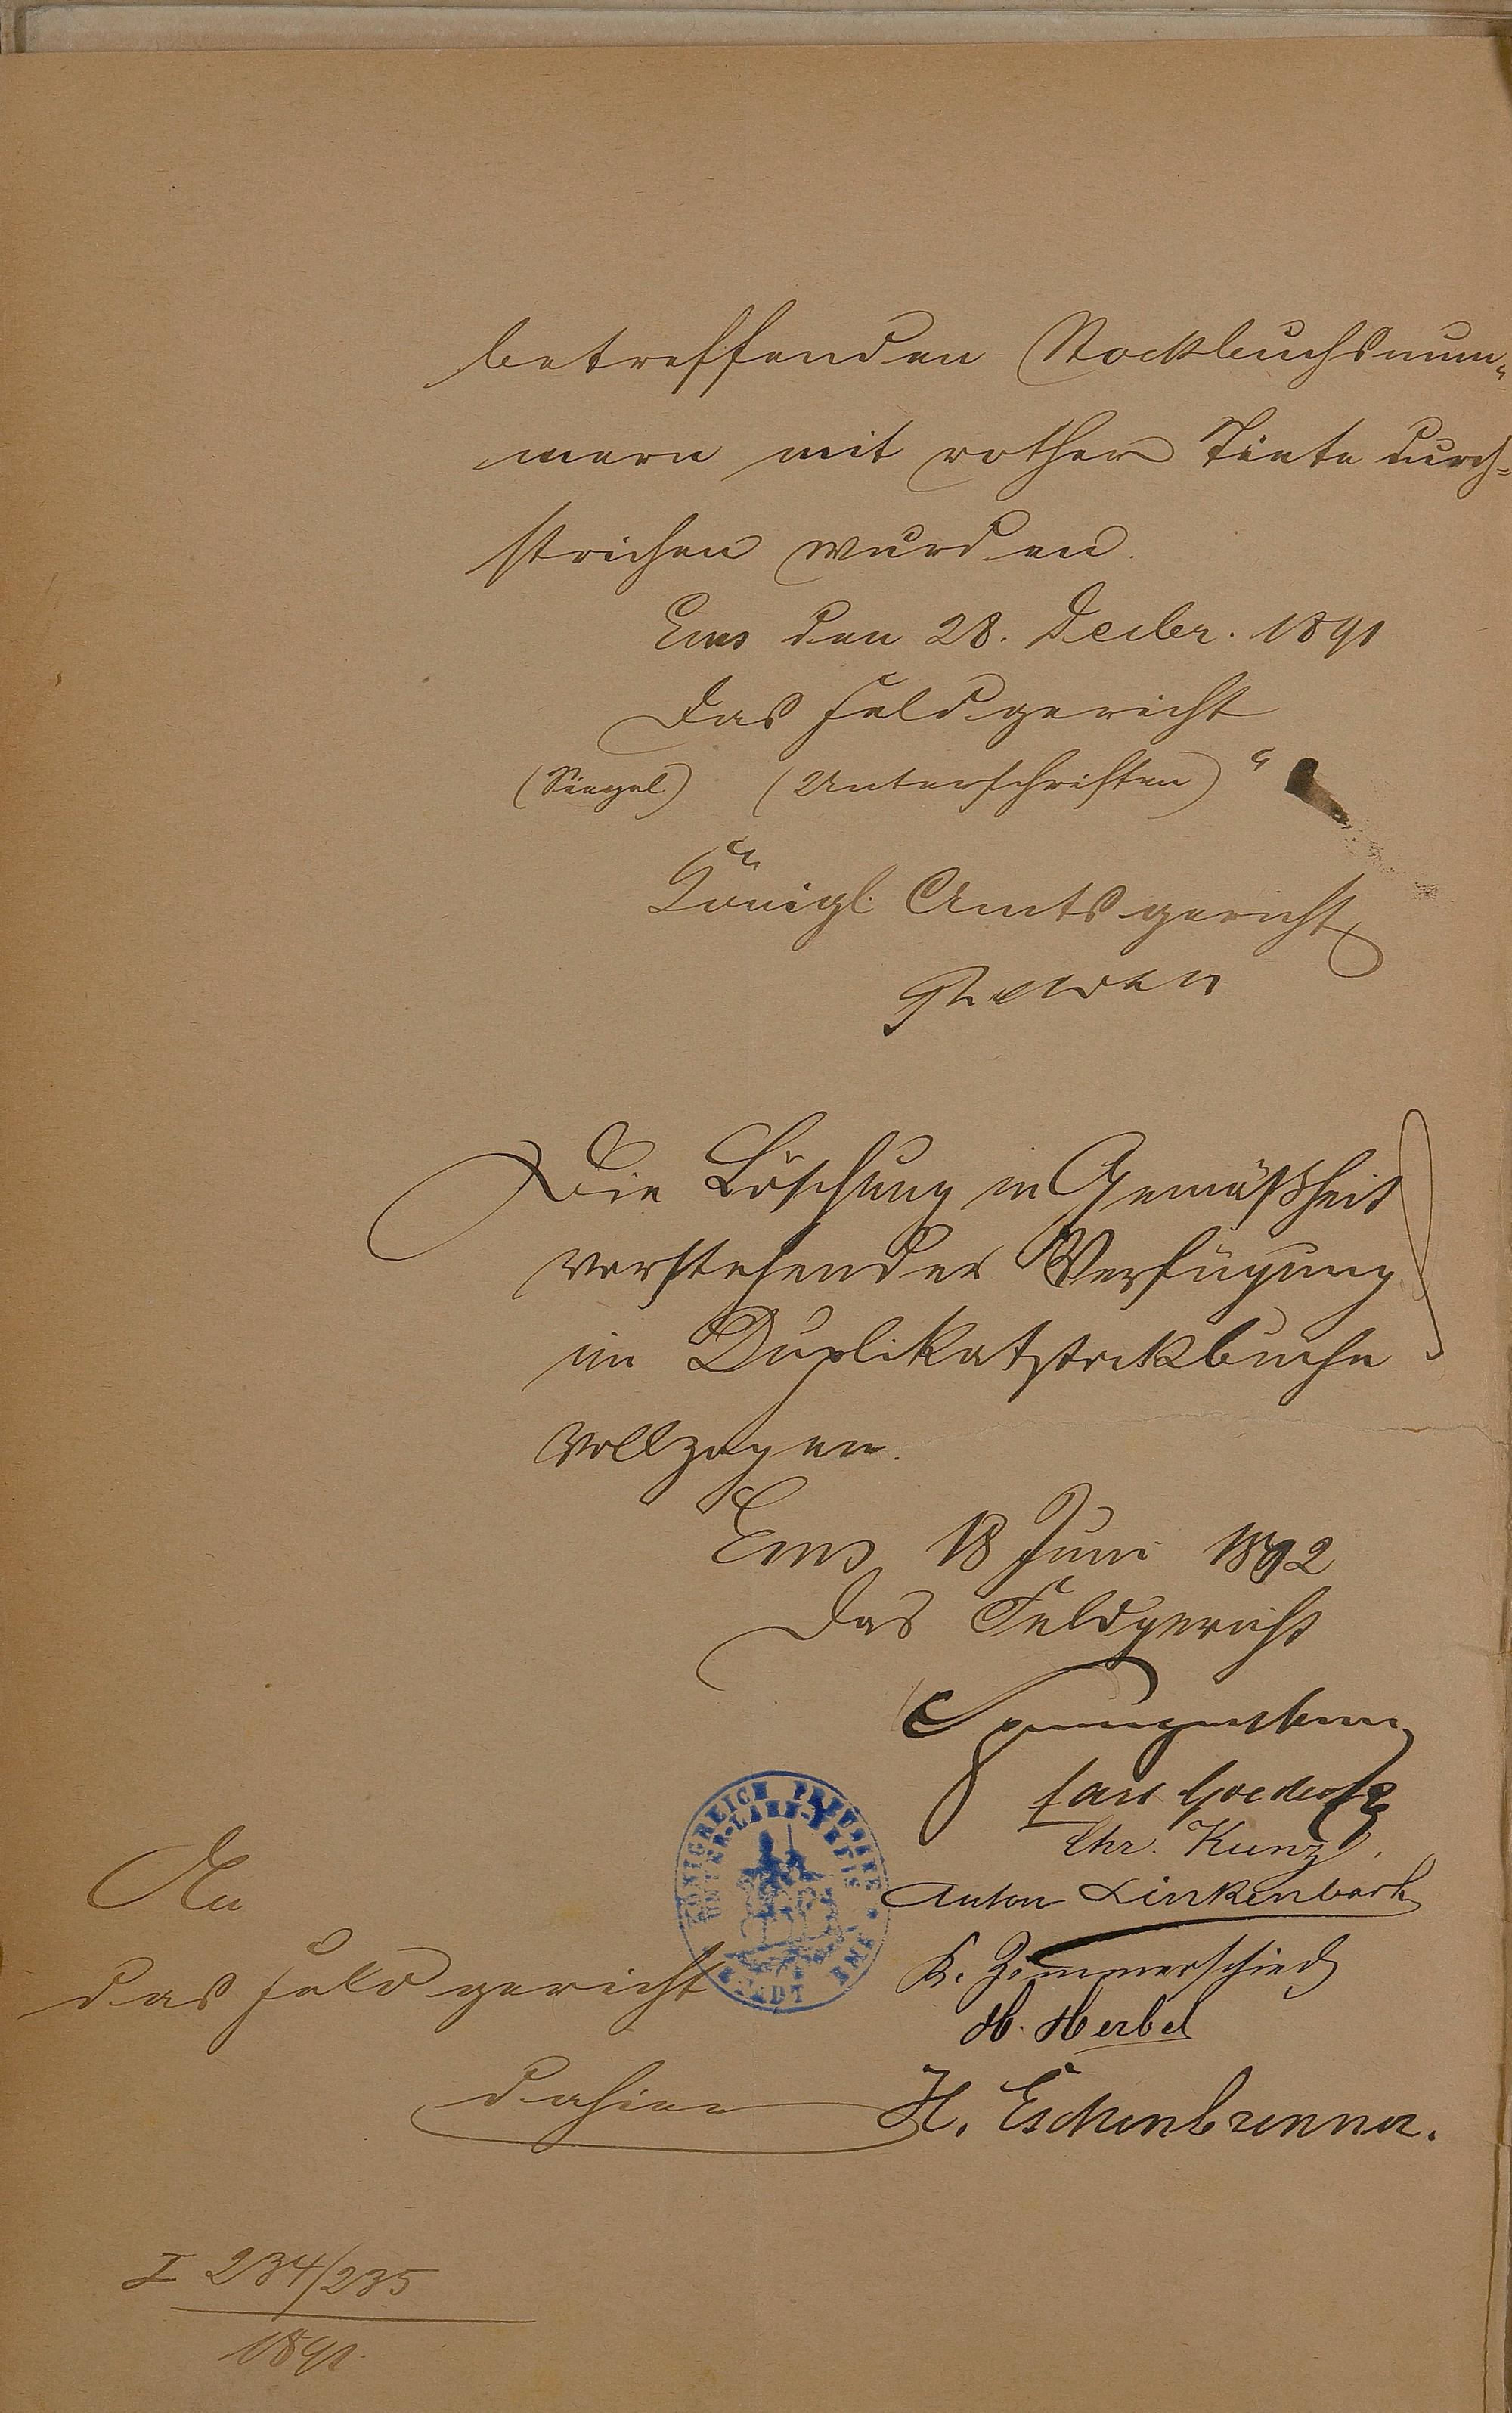 betreffenden Stockbuchsnum„
mern mit rother Tinte durch=
strichen wurden.
Ems den 28. Decbr. 1891
Das Feldgericht
(Siegel) (Unterschriften) “
Königl. Amtsgericht
Die Löschung in Gemäßheit
vorstehender Verfügung
im Duplikatstockbuche
vollzogen.
Ems 18 Juni 1892
Das Feldgericht
Chr. Kunz.
Anton Linkenbach
K. Zimmerschied
H. Herbel
H. Eschenbrenner.
KÖNIGREICH PREUSSEN
UNTER-LAHN-KREIS
STADT EMS
An
das Feldgericht
dahier
I 234/235
1891.